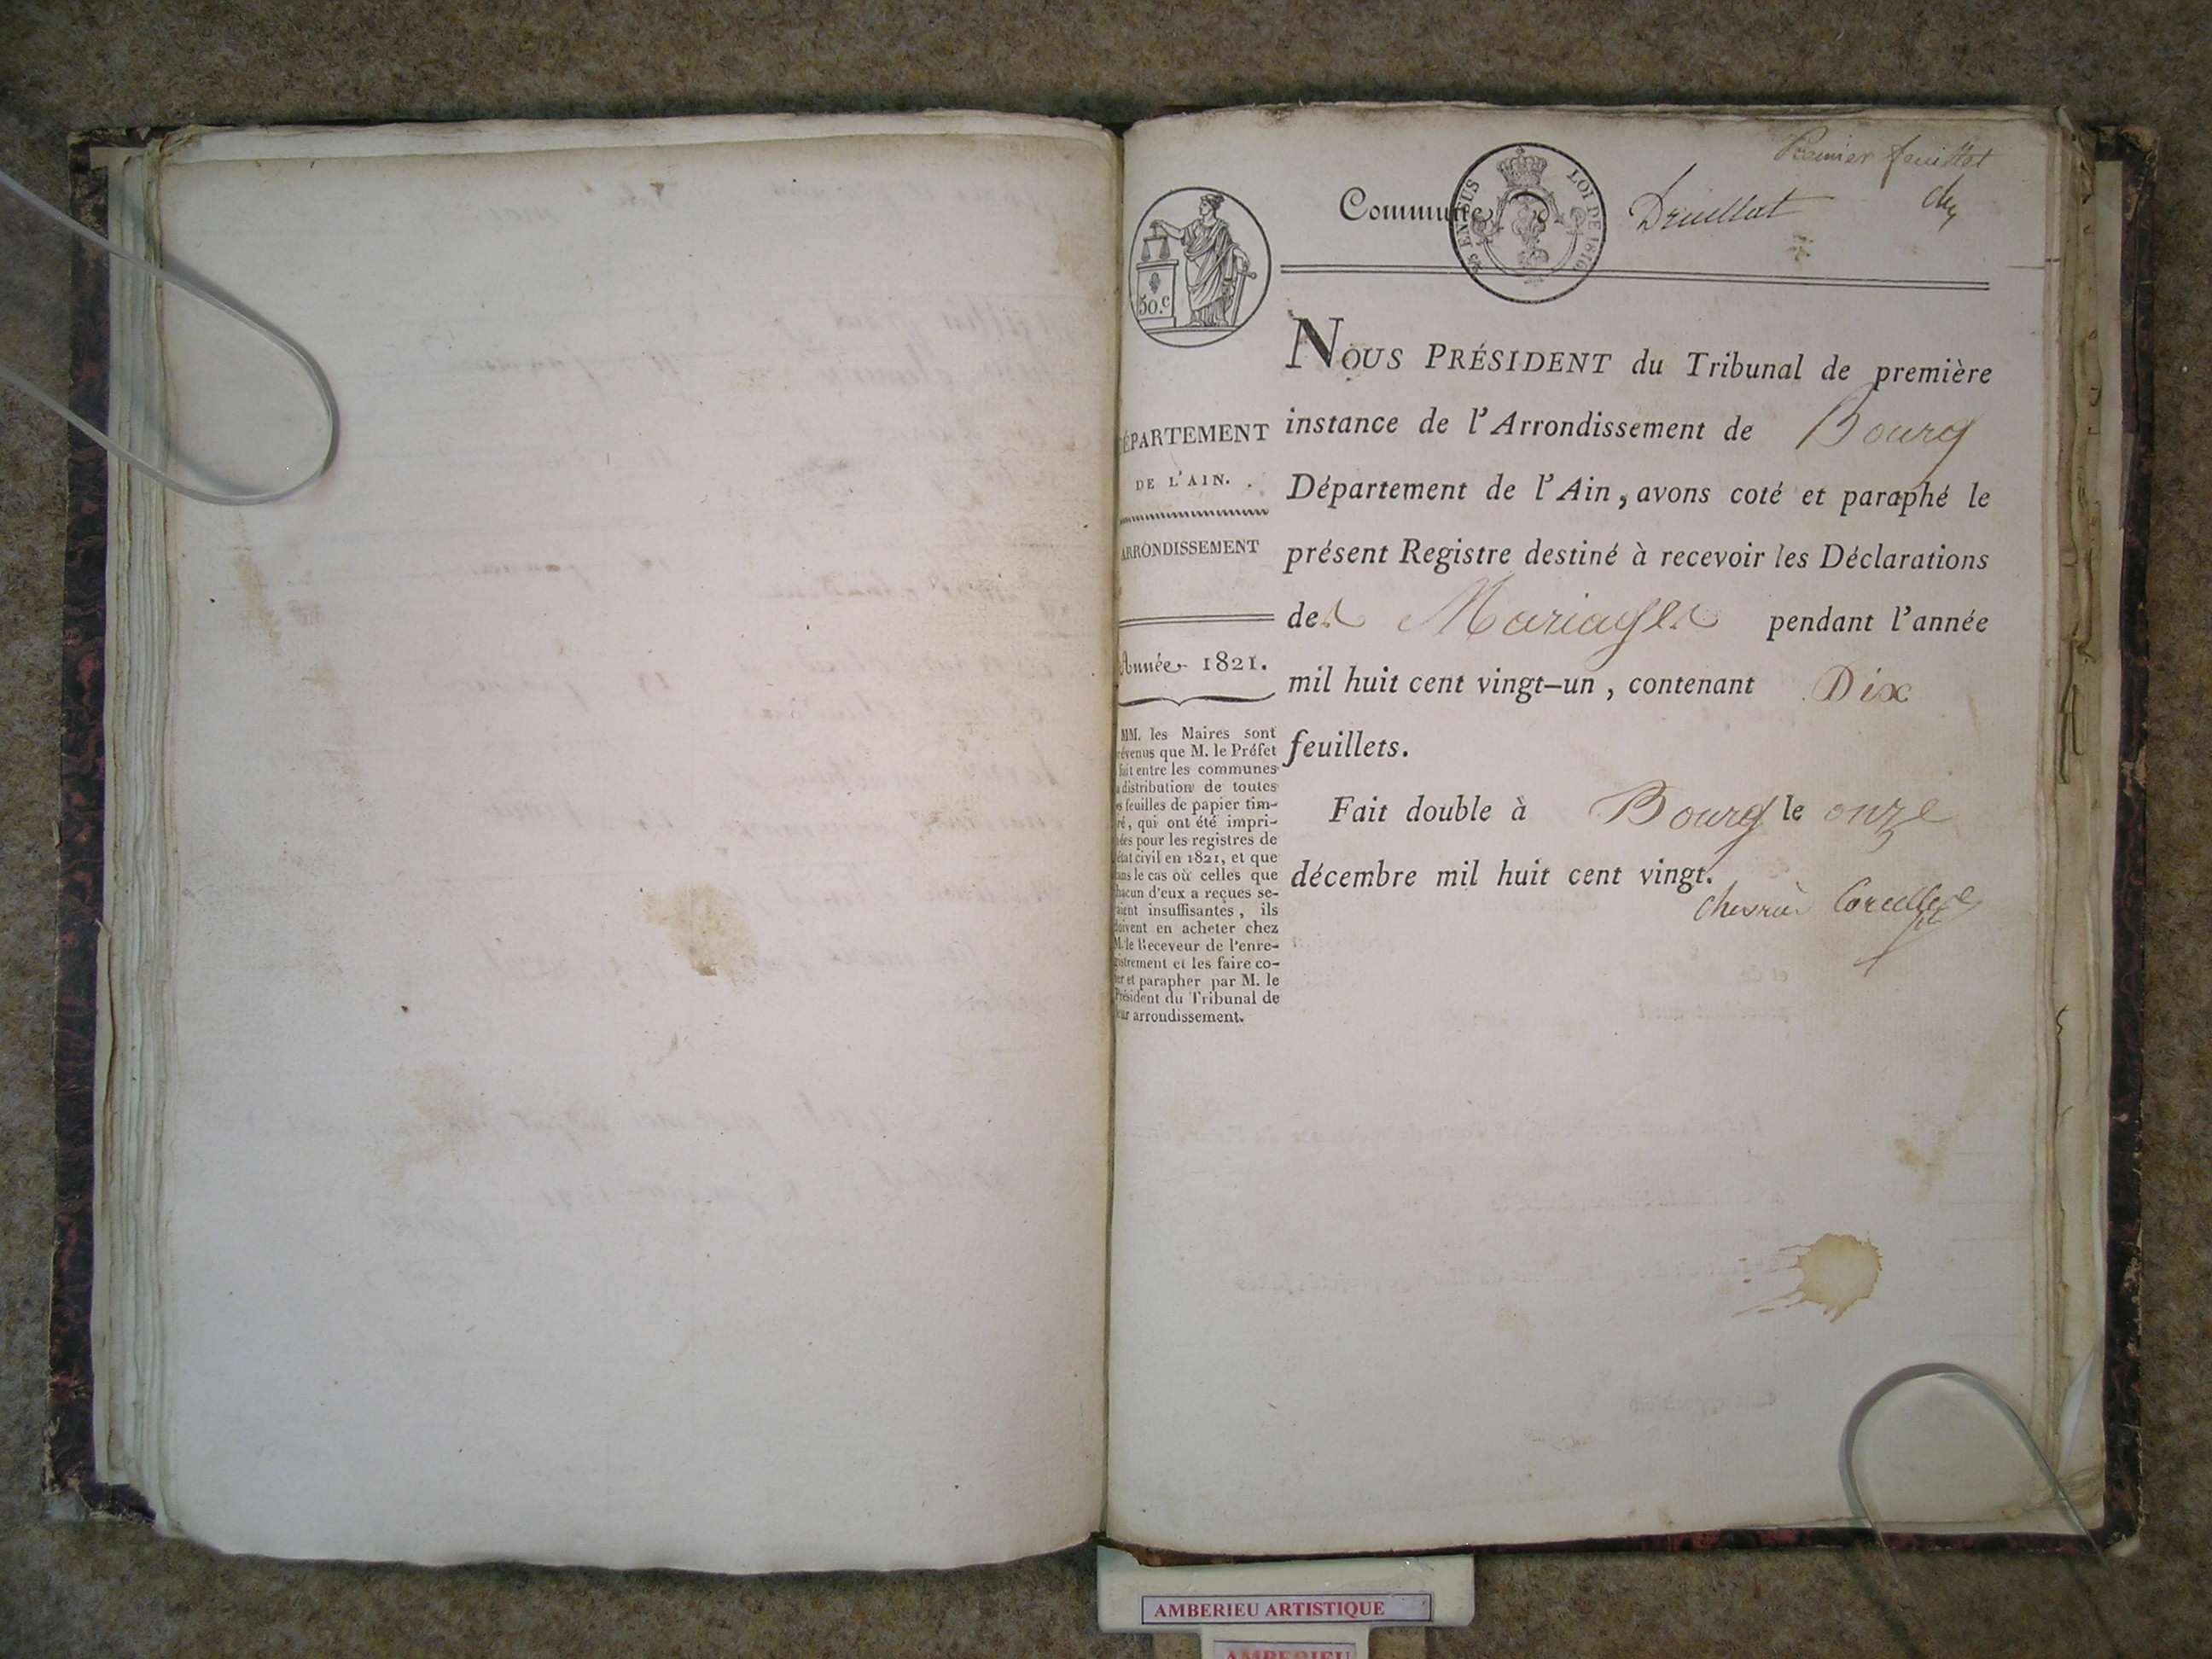 Premier feuillet
Commune Druillat
25 EN SUS LOI DE 1816
50.c
NOUS PRÉSIDENT du Tribunal de première
instance de l'Arrondissement de Bourg
Département de l'Ain, avons coté et paraphé le
présent Registre destiné à recevoir les Déclarations
des Mariages pendant l'année
mil huit cent vingt-un, contenant Dix
feuillets.
Fait double à Bourg le onze
décembre mil huit cent vingt.
DÉPARTEMENT
DE L'AIN.
ARRONDISSEMENT
Année 1821.
MM. les Maires sont
prévenus que M. le Préfet
fait entre les communes
la distribution de toutes
les feuilles de papier tim-
bré, qui ont été impri-
mées pour les registres de
l'état civil en 1821, et que
dans le cas où celles que
chacun d'eux a reçues se-
raient insuffisantes, ils
doivent en acheter chez
M. le Receveur de l'enre-
gistrement et les faire co-
ter et parapher par M. le
Président du Tribunal de
leur arrondissement.
AMBERIEU ARTISTIQUE
AMBERIEU